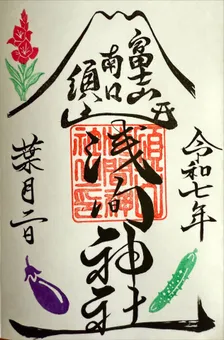 令和七年
富士山
南口
須山
浅間神社
葉月二日